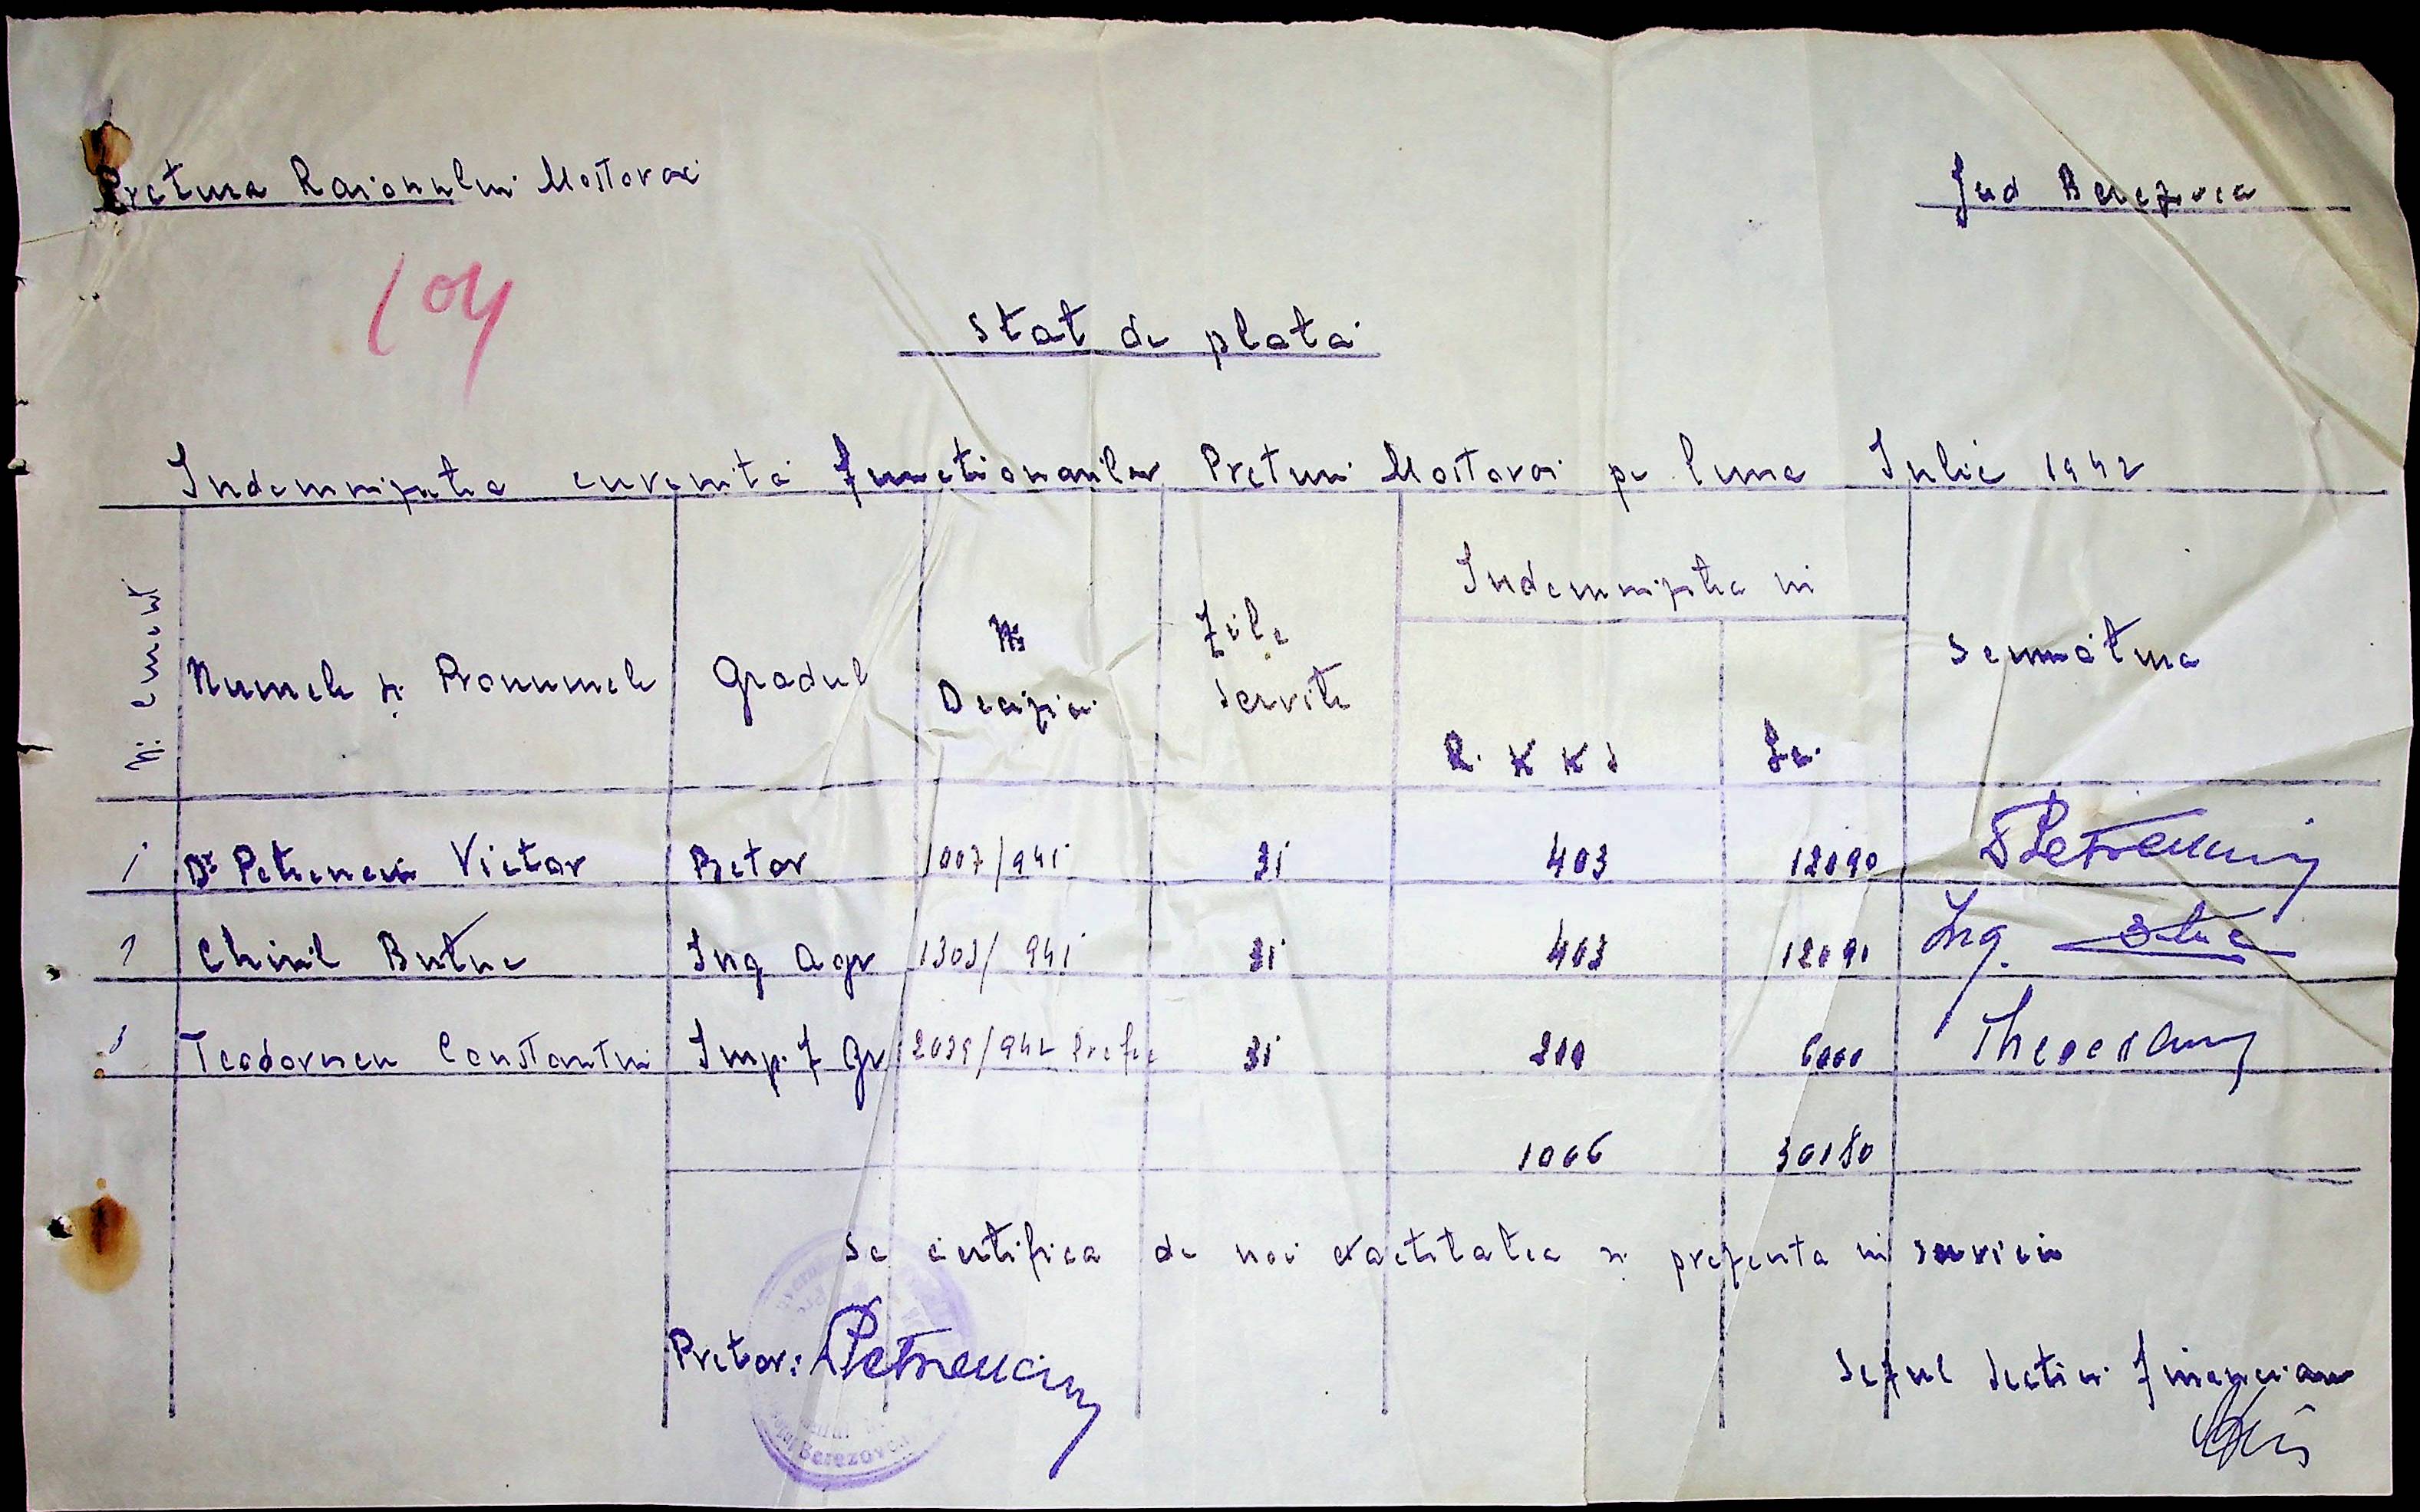 Pretura Raionului Mostovoi
Jud Berezovca
104
Stat de plată
Indemnizatia cuvenită functionarilor Preturi Mostovoi pe luna Iulie 1942
Nr. curent
Numele si Pronumele
Gradul
Nr Decizei
Zile servite
Indemnizatia in
R. K K S
Lei
Semnătura
1 Dr Petrencu Victor Pretor 1007/941 31 403 12090
2 Chiril Butuc Ing Agr 1303/941 31 403 12090 Ing.
3 Teodorescu Constantin Imp. f Gr 2039/942 Prefec 31 200 6000
1006 30180
Se certifica de noi exactitatea si prezenta in serviciu
Pretor:
Seful Sectiei financiare
Berezovca